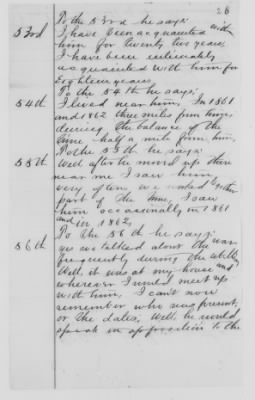 26
To the 53rd he says:
53rd I have been acquainted with
him for twenty two years.
I have been intimately
acquainted with him for
Eighteen years.
To the 54th he says;
54th I lived near him, In 1861
and 1862 three miles from him,
during the balance of the
time half a mile from him.
To the 55th he says:
55th Well after he moved up there
near me I saw him
very often, we worked together
part of the time, I saw
him occasionally in 1861
and in 1862.
To the 56th he says:
56th yes we talked about the war
frequently during the while
Well, it was at my house and
wherever I would meet up
with him, I can't now
remember who was present,
or the dates. Well, he would
speak in opposition to the